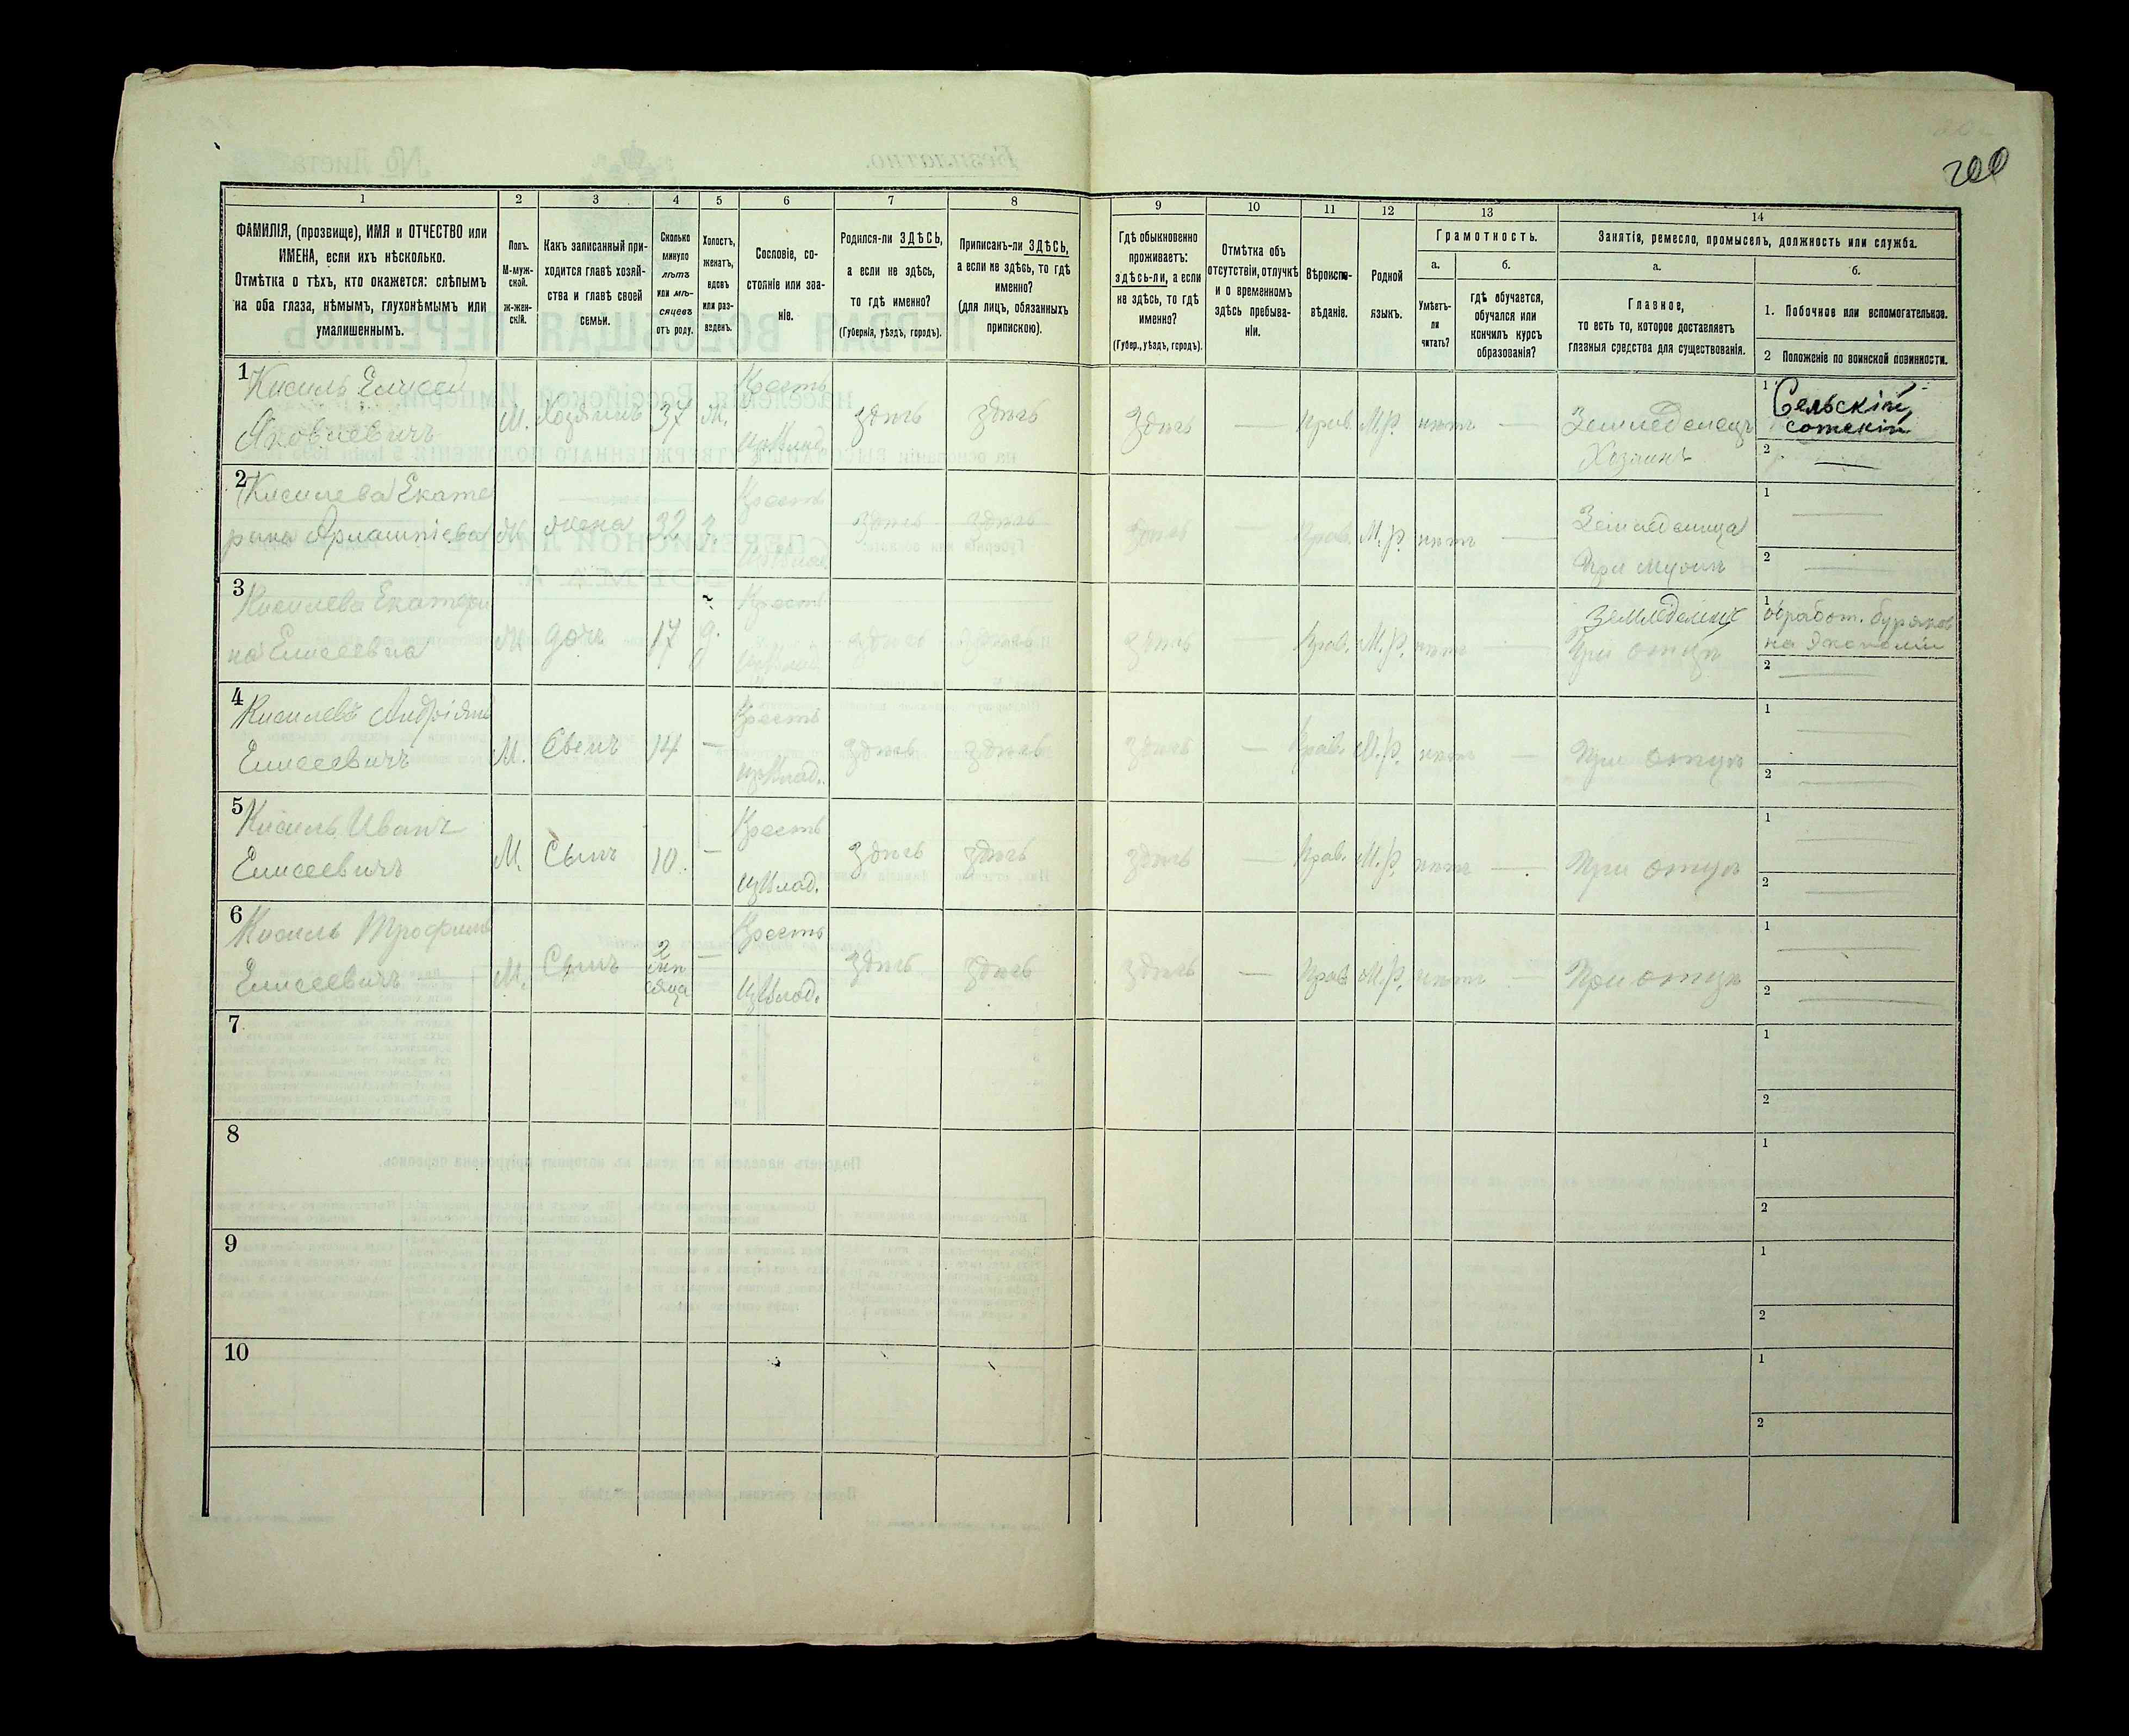 200
1 2 3 4 5 6 7 8 9 10 11 12 13 14
ФАМИЛІЯ, (прозвище), ИМЯ и ОТЧЕСТВО или
ИМЕНА, если ихъ нѣсколько.
Отмѣтка о тѣхъ, кто окажется: слѣпымъ
на оба глаза, нѣмымъ, глухонѣмымъ или
умалишеннымъ.
Полъ.
М-муж-
ской.
ж-жен-
скій.
Какъ записанный при-
ходится главѣ хозяй-
ства и главѣ своей
семьи.
Сколько
минуло
лѣтъ
или мѣ-
сяцевъ
отъ роду.
Холостъ,
женатъ,
вдовъ
или раз-
веденъ.
Сословіе, со-
стояніе или зва-
ніе.
Родился-ли ЗДѢСЬ,
а если не здѣсь,
то гдѣ именно?
(Губернія, уѣздъ, городъ).
Приписанъ-ли ЗДѢСЬ,
а если не здѣсь, то гдѣ
именно?
(для лицъ, обязанныхъ
припискою).
Гдѣ обыкновенно
проживаетъ:
здѣсь-ли, а если
не здѣсь, то гдѣ
именно?
(Губер., уѣздъ, городъ).
Отмѣтка объ
отсутствіи, отлучкѣ
и о временномъ
здѣсь пребыва-
ніи.
Вѣроиспо-
вѣданіе.
Родной
языкъ.
Грамотность.
а.
Умѣетъ-
ли
читать?
б.
гдѣ обучается,
обучался или
кончилъ курсъ
образованія?
Занятія, ремесло, промыселъ, должность или служба.
а.
Главное,
то есть то, которое доставляетъ
главныя средства для существованія.
б.
1. Побочное или вспомогательное.
2 Положеніе по воинской повинности.
1 Кисиль Елисей
Яковлевичъ
М. Хозяинъ 37 ж.
Кресть
изВлад.
здѣсь здѣсь здѣсь — Прав. М.р. нѣтъ —
Земледелецъ
Хозяинъ
1 Сельскій
сотскій
2 —
2 Кисилева Екате
рина
ж жена 32 з.
Кресть
изВлад.
здѣсь здѣсь здѣсь — Прав. М.р. нѣтъ —
Земледелица
При мужѣ
1 —
2 —
3 Кисилева Екатери
на Елисеевна
ж дочь 17 д.
Кресть
изВлад.
здѣсь здѣсь здѣсь — Прав. М.р. нѣтъ —
При отцѣ
1 обработ. буряков
на экономіи
2 —
4 Кисилевъ Андріянъ
Елисеевичъ
М. Сынъ 14 —
Кресть
изВлад.
здѣсь здѣсь здѣсь — Прав. М.р. нѣтъ — При отцѣ
1 —
2 —
5 Кисиль Иванъ
Елисеевичъ
М. Сынъ 10. —
Кресть
изВлад.
здѣсь здѣсь здѣсь — Прав. М.р. нѣтъ — При отцѣ
1 —
2 —
6 Кисиль Трофимъ
Елисеевичъ
М. Сынъ
2
мѣ
сяца
—
Кресть
изВлад.
здѣсь здѣсь здѣсь — Прав М.р. нѣтъ — При отцѣ
1 —
2 —
7
1
2
8
1
2
9
1
2
10
1
2